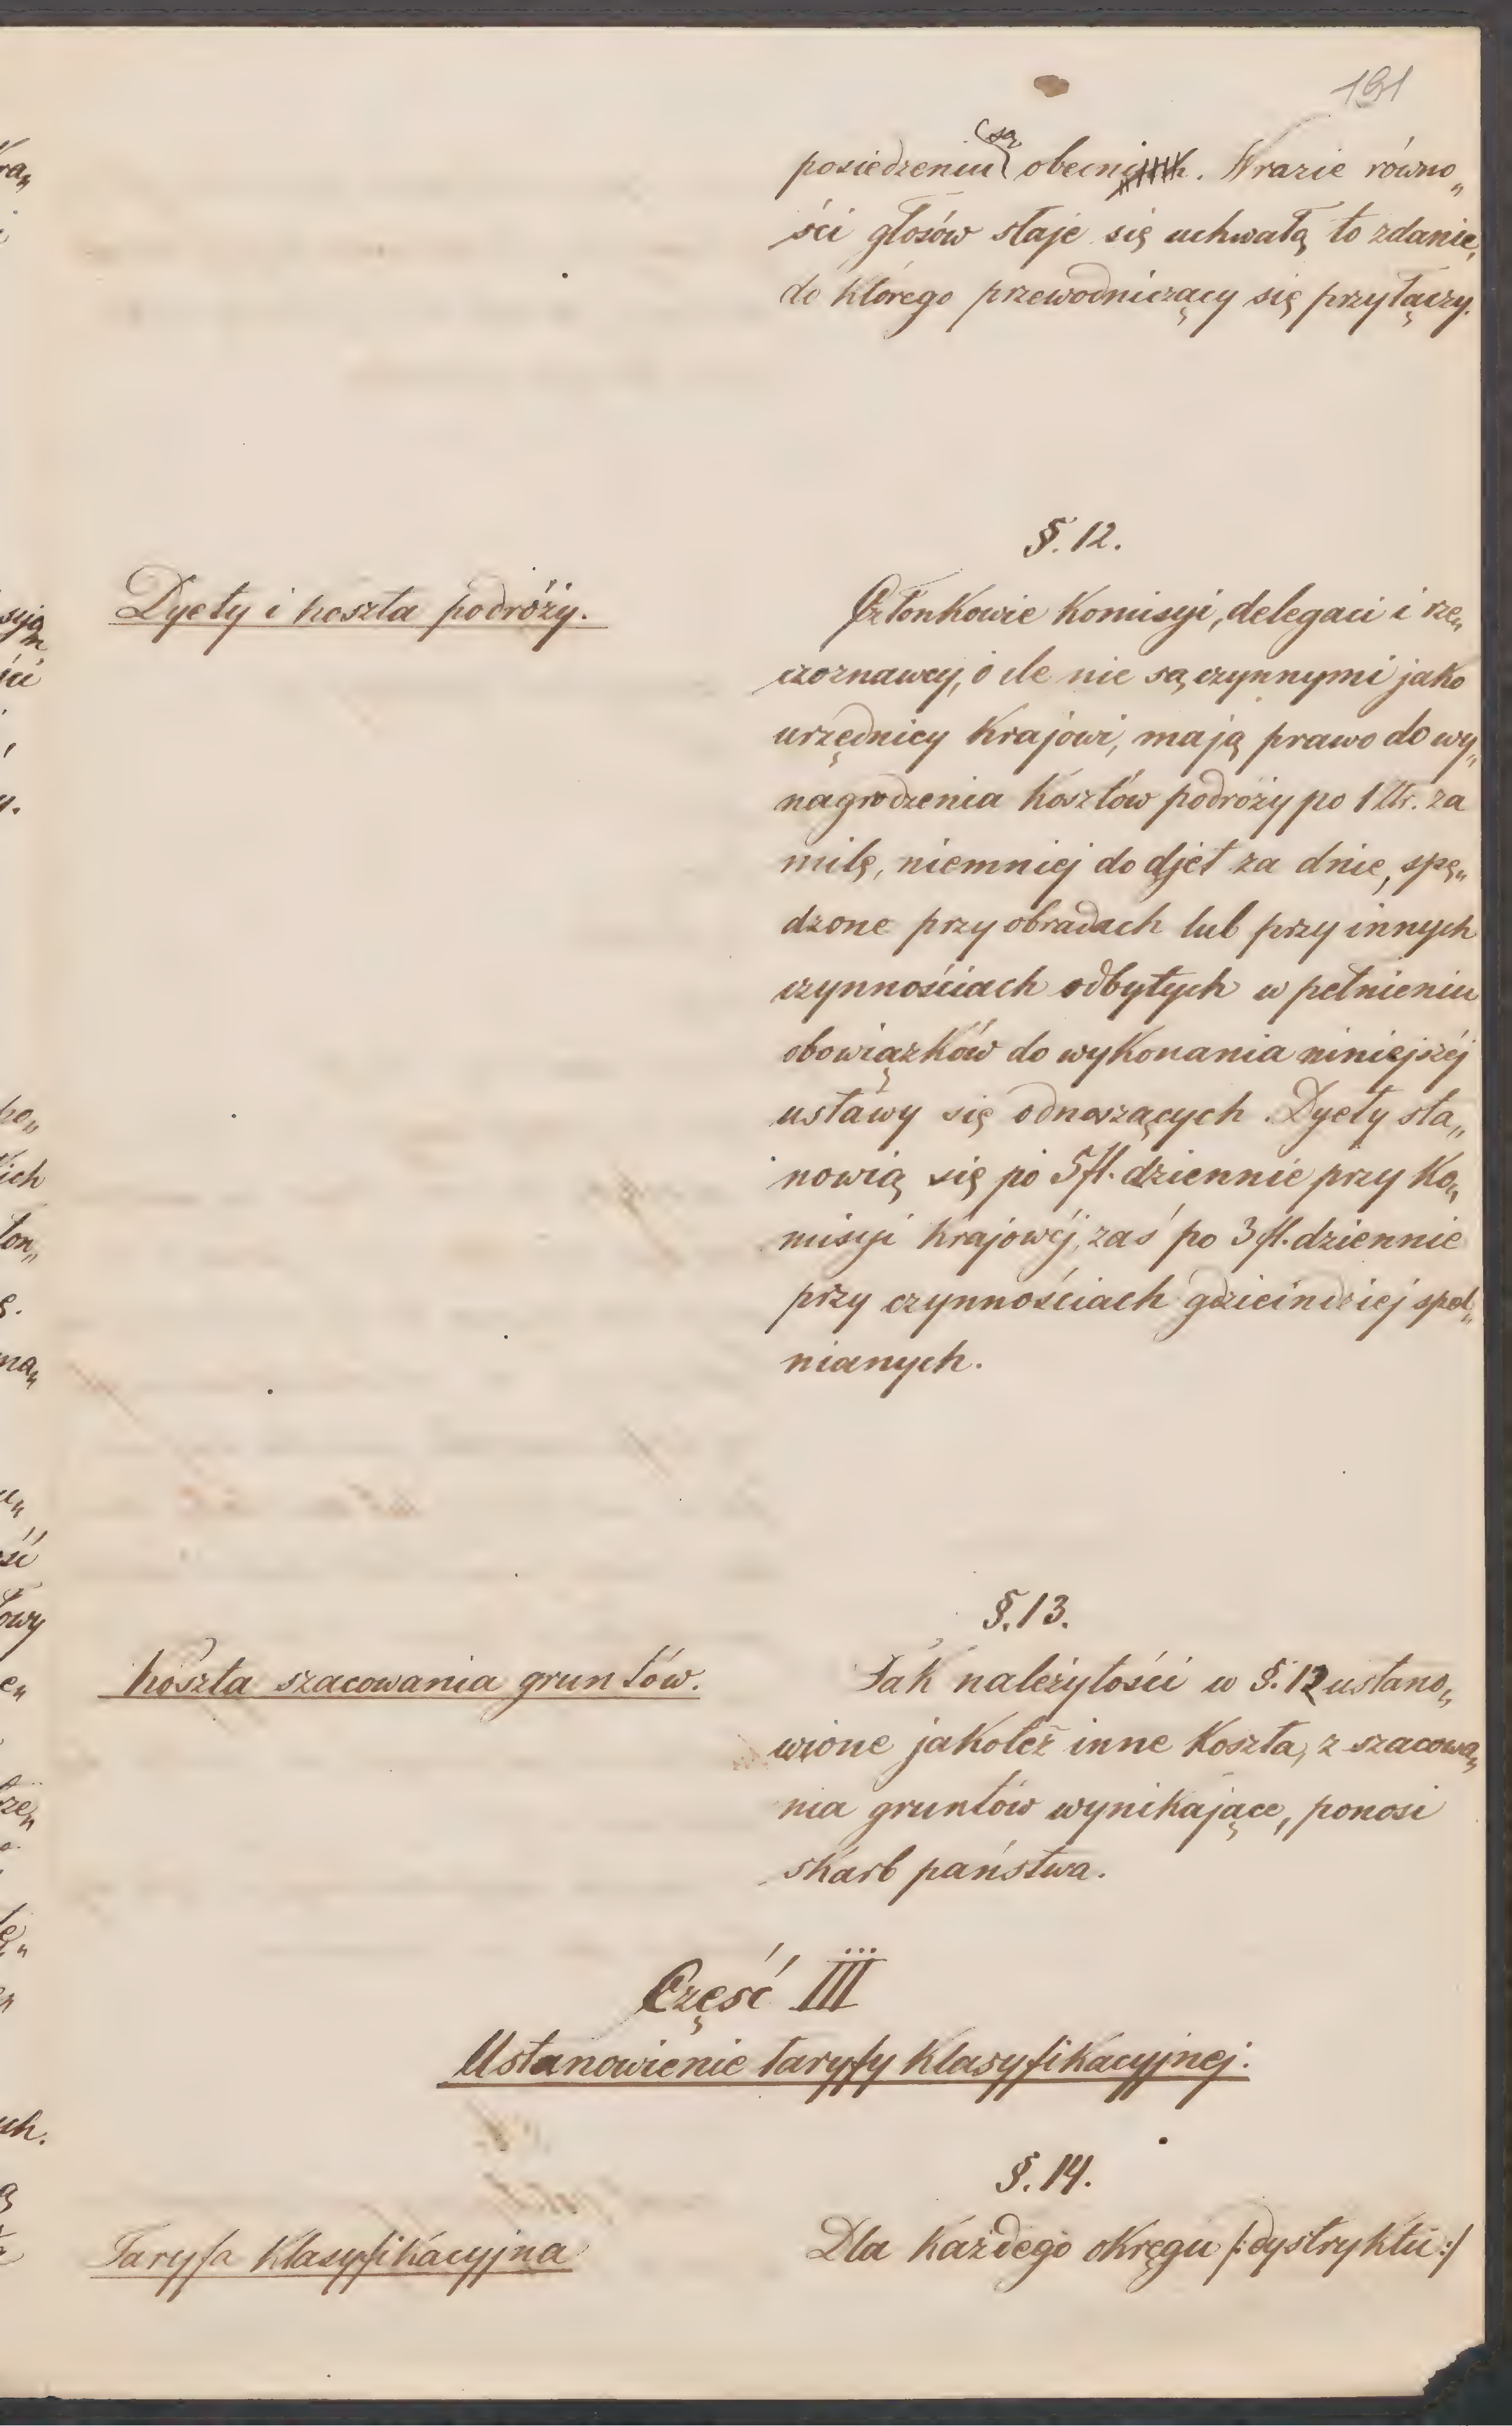 191
posiedzeniu są obecni. W razie równo„
ści głosów staje się uchwałą to zdanie,
do którego przewodniczący się przyłączy.
§. 12.
Dyety i koszta podróży.
Członkowie Komisyi, delegaci i rze„
czoznawcy, o ile nie są czynnymi jako
urzędnicy Krajowi, mają prawo do wy„
nagrodzenia kosztów podróży po 1 Złr. za
milę, niemniej do djet za dnie, spę„
dzone przy obradach lub przy innych
czynnościach odbytych w pełnieniu
obowiązków do wykonania niniejszéj
ustawy się odnoszących. Dyety sta„
nowią się po 5 fl. dziennie przy Ko„
misyi Krajowéj, zaś po 3 fl. dziennie
przy czynnościach gdzieindziej speł„
nianych.
§. 13.
Koszta szacowania gruntów.
Jak należytości w §. 12 ustano„
wione jakoteż inne Koszta, z szacowa„
nia gruntów wynikające, ponosi
skarb państwa.
Część III
Ustanowienie taryfy klasyfikacyjnej.
§. 14.
Taryfa Klasyfikacyjna
Dla każdego okręgu /:dystryktu:/